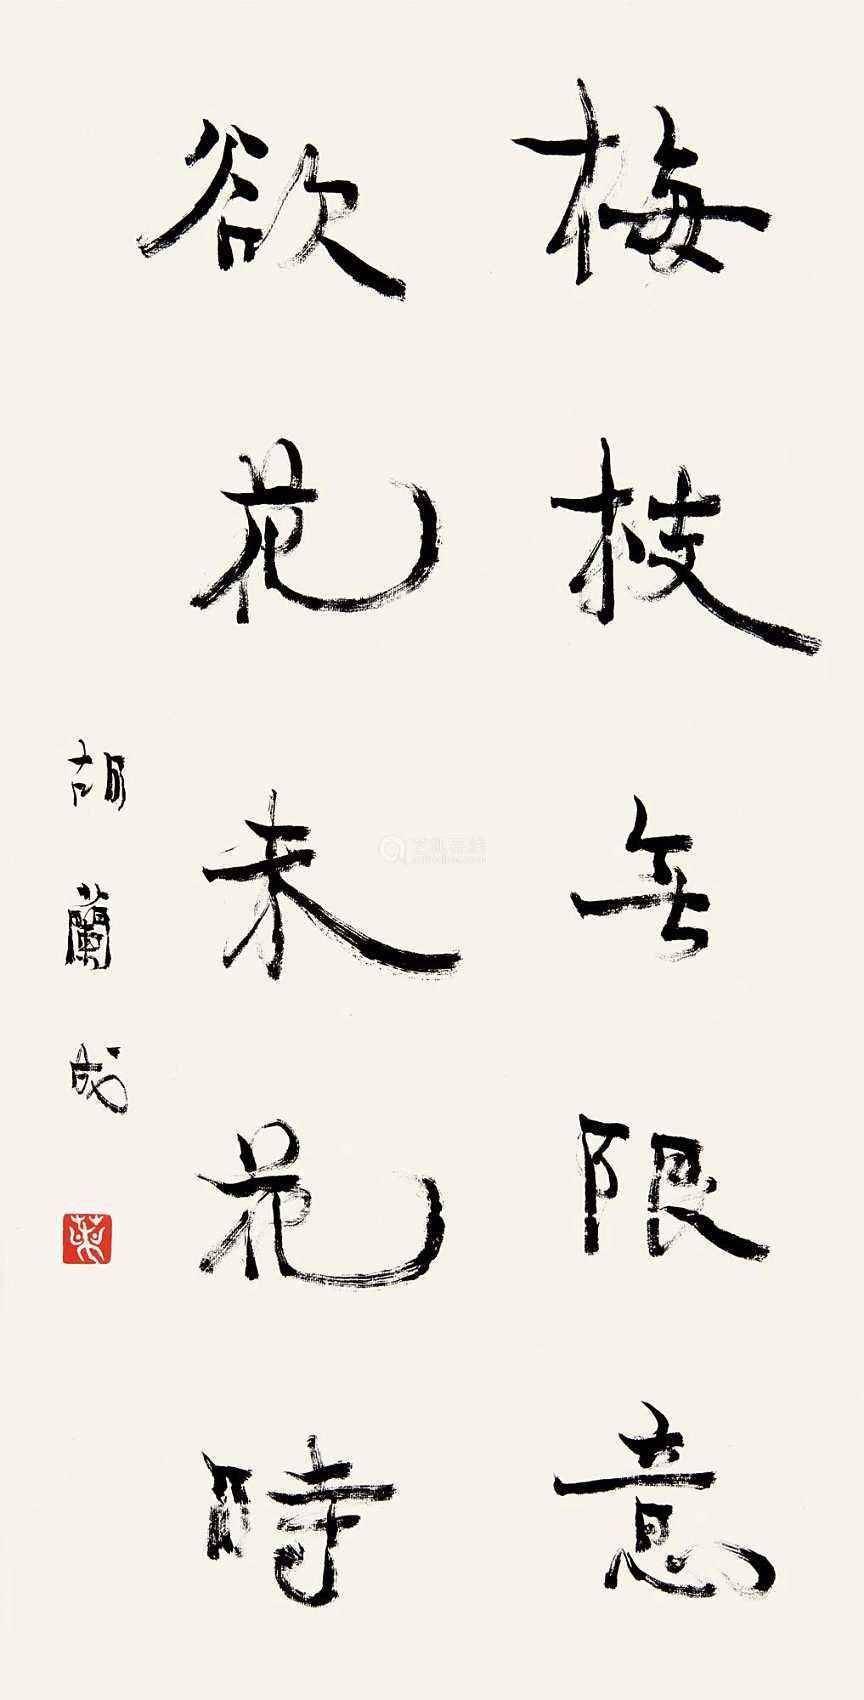 梅枝无限意
欲花未花時
胡蘭成